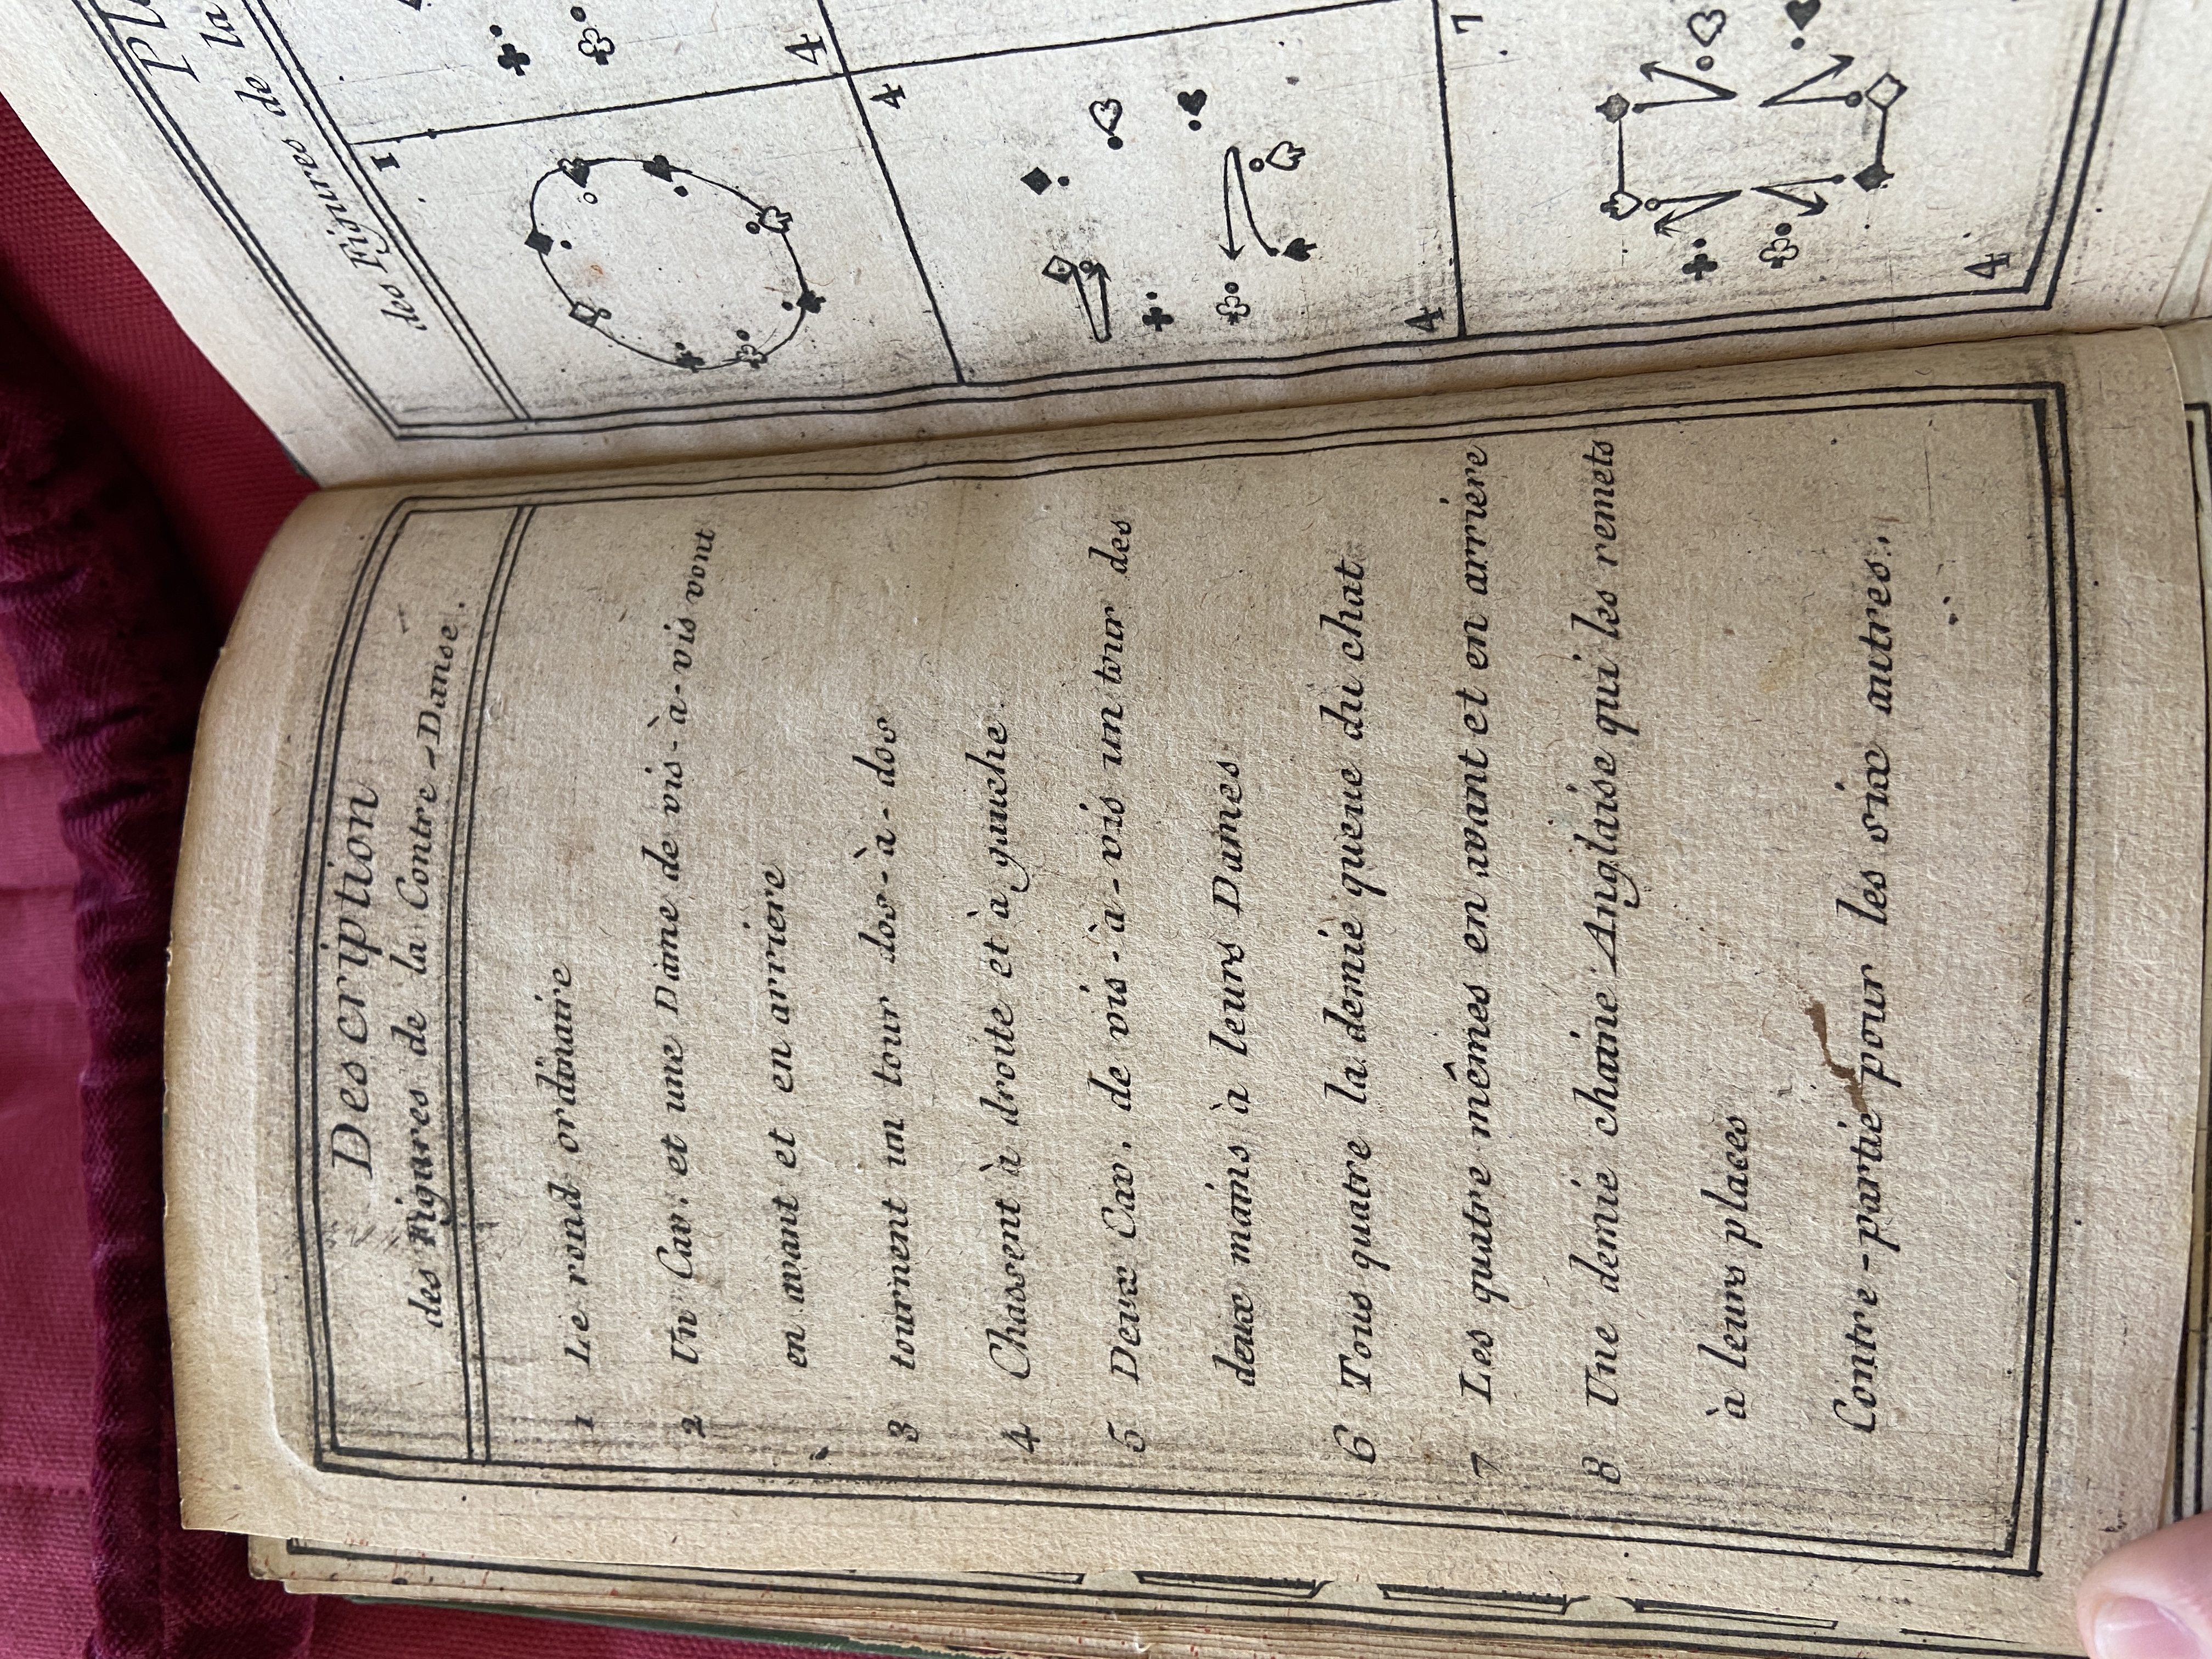 Description
des Figures de la Contre-Danse.
1 Le rond ordinaire
2 Un Cav. et une Dame de vis-à-vis vont
en avant et en arriere
3 tournent un tour dos-à-dos
4 Chassent à droite et à gauche.
5 Deux Cav. de vis-à-vis un tour des
deux mains à leurs Dames
6 Tous quatre la demie queue du chat.
7 Les quatre mêmes en avant et en arriere
8 Une demie chaine Anglaise qui les remets
à leurs places
Contre-partie pour les six autres.
des Figures de la
1
4
4
4
7
4